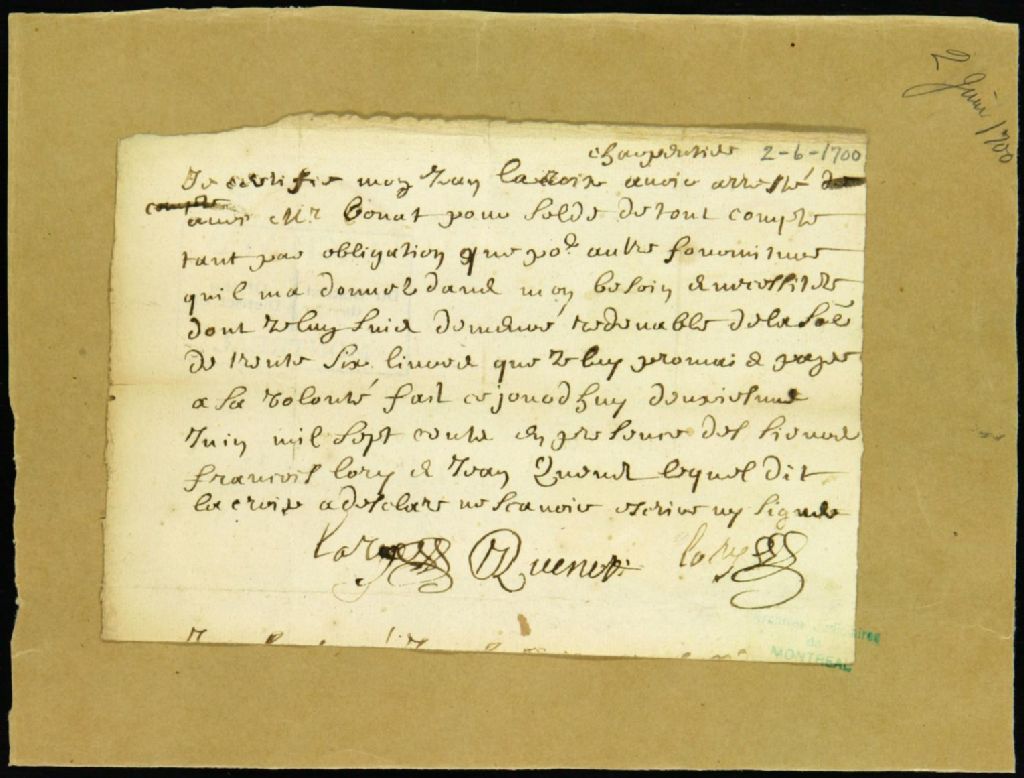 2 Juin 1700
charpentier 2-6-1700
Je certifie moy Jean lacroix avoir arresté de
compte
avec Mr bonat pour solde de tout compte
tant par obligation que por autre fourniture
quil ma donné dans mon besoin & necessitez
dont je luy suis demeuré redevable de la some
de trente six livres que je luy promais de payer
a sa volonté fait ce jourdhuy deuxiesme
Juin mil sept cents en presence des sieurs
francois lory & Jean Quenet lequel dit
lacroix a desclare ne scavoir escrire ny signer
lory JQuenet lory
Archives Judiciaires
de
MONTREAL